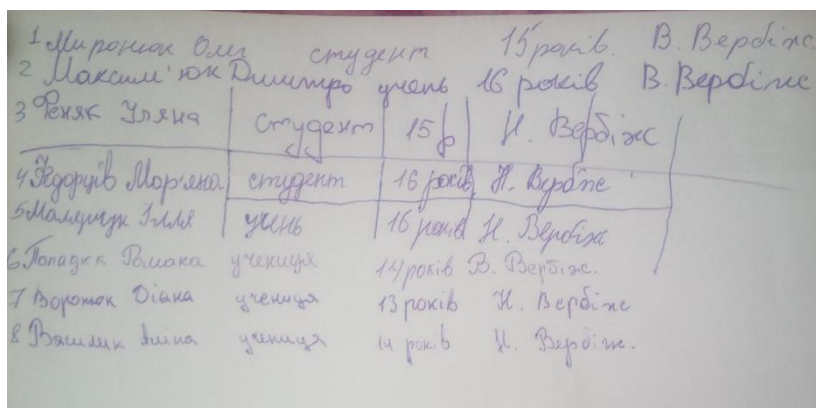 1 Миронюк Олег студент 15 років. В. Вербіж.
2 Максим'юк Дмитро учень 16 років В. Вербіж
3 Феняк Уляна студент 15 р Н. Вербіж
4 Федорців Мар'яна студент 16 років Н. Вербіж
5 Ілля учень 16 років Н. Вербіж
6 Попадюк Романа учениця 14 років В. Вербіж.
7 Воронюк Діана учениця 13 років Н. Вербіж
8 Василик Аліна учениця 14 років Н. Вербіж.